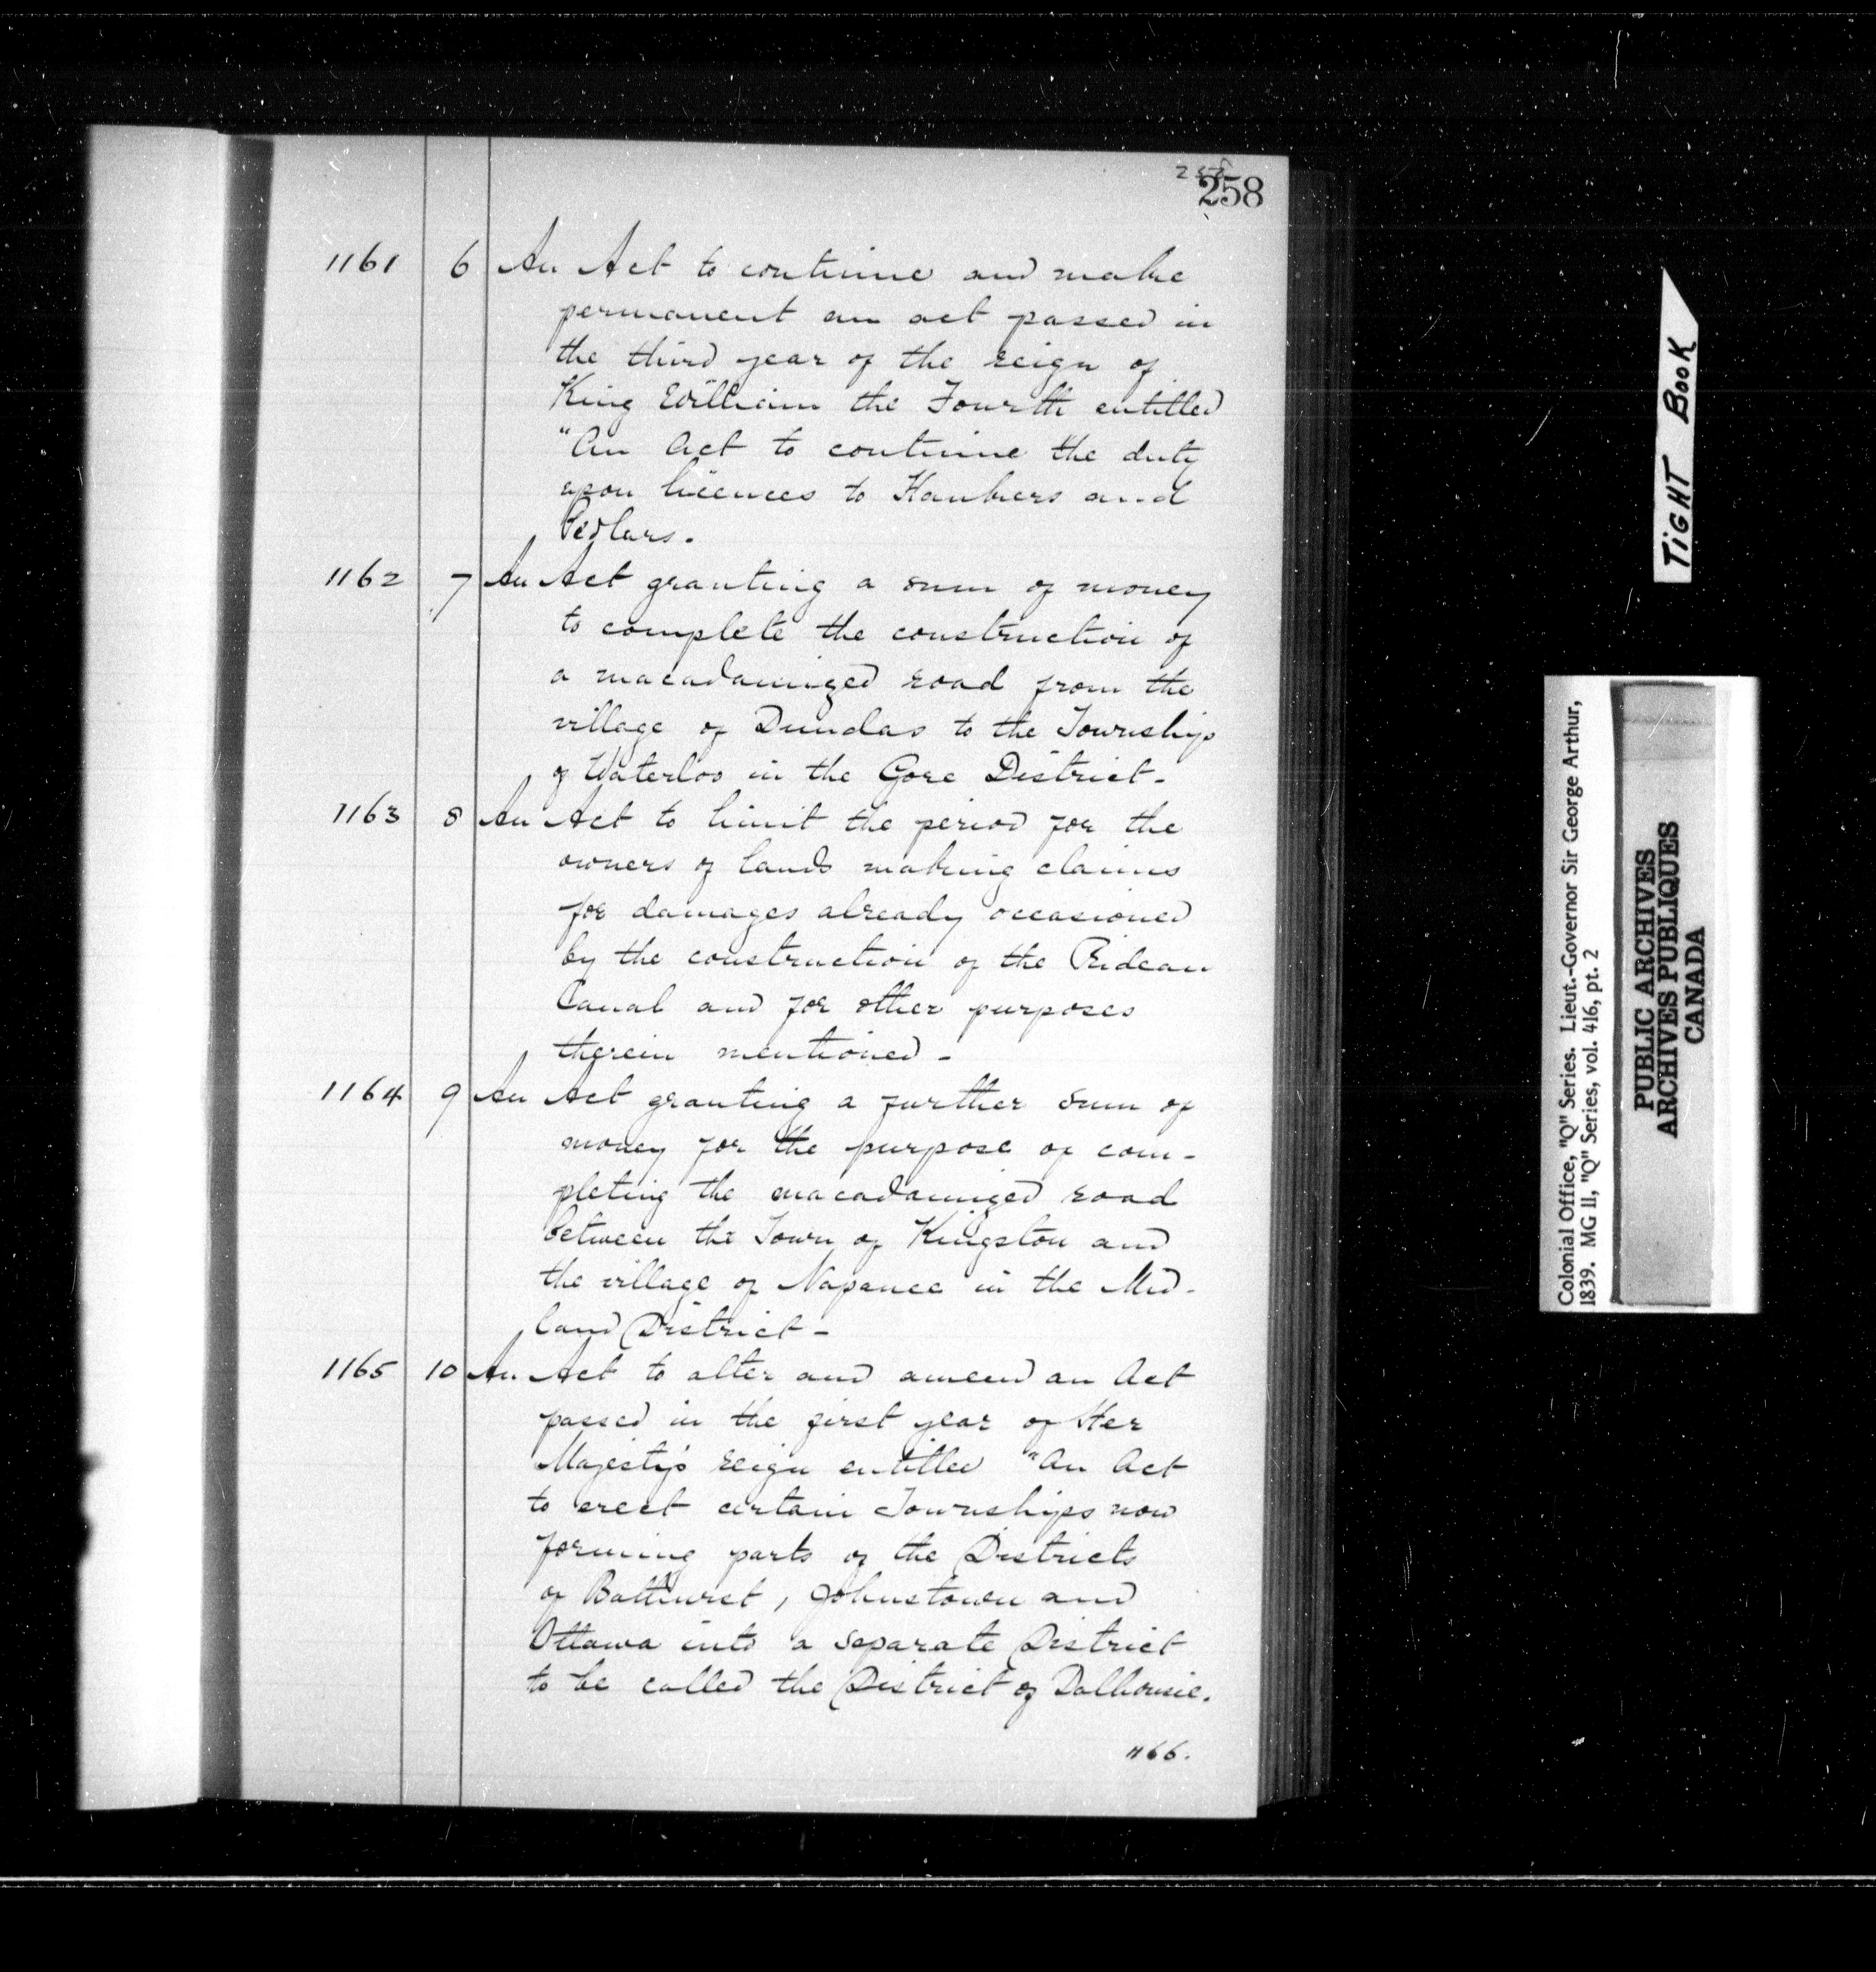 258
258
1161 6 An Act to continue and make
permanent an act passed in
the third year of the reign of
King William the Fourth entitled
"An Act to continue the duty
upon licences to Hawkers and
Pedlars.
1162 7 An Act granting a sum of money
to complete the construction of
a macadamized road from the
village of Dundas to the Township
of Waterloo in the Gore District-
1163 8 An Act to limit the period for the
owners of lands making claims
for damages already occasioned
by the construction of the Rideau
Canal and for other purposes
therein mentioned-
1164 9 An Act granting a further sum of
money for the purpose of com-
pleting the macadamized road
between the Town of Kingston and
the village of Napanee in the Mid-
land District-
1165 10 An Act to alter and amend an Act
passed in the first year of Her
Majesty's reign entitled "An Act
to erect certain Townships now
forming parts of the Districts
of Bathurst, Johnstown and
Ottawa into a separate District
to be called the District of Dalhousie.
1166.
TIGHT BOOK
Colonial Office, "Q" Series. Lieut.-Governor Sir George Arthur,
1839. MG 11, "Q" Series, vol. 416, pt. 2
PUBLIC ARCHIVES
ARCHIVES PUBLIQUES
CANADA